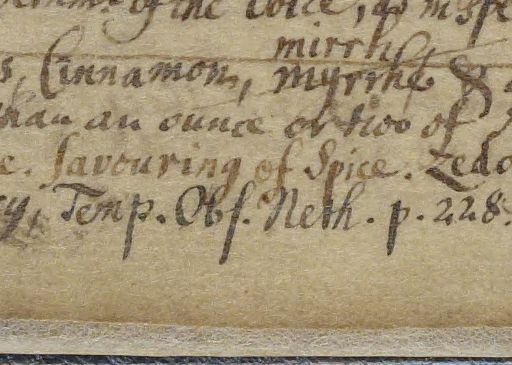 of the voice, as
mirrh
s, Cinnamon, Myrrhe &
than an ounce or two of
e. Savouring of Spice. Zedo
cy, Temp. Obs. Neth. p. 228.